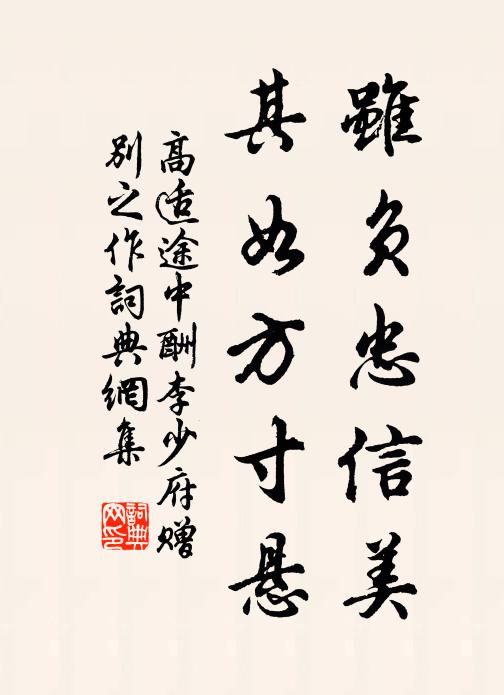 雖負忠信美
其如方寸悬
高适途中酬李少府赠
别之作詞典網集
詞典
网印